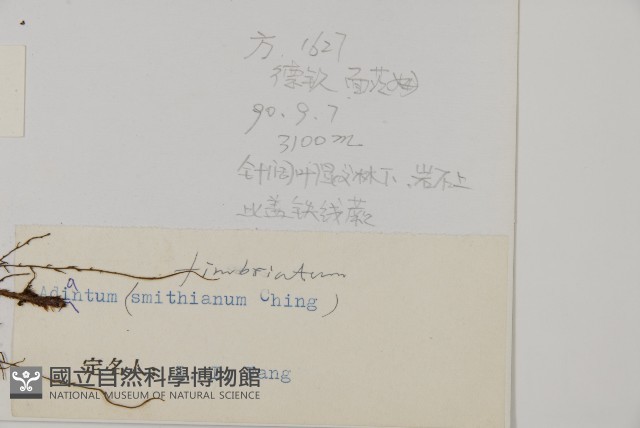 方. 1627
德钦
90.9.7
3100m
针阔叶混交林下.岩石上
长盖铁线蕨
fimbriatum
Adiantum (smithianum Ching)
定名人
ang
國立自然科學博物館
NATIONAL MUSEUM OF NATURAL SCIENCE